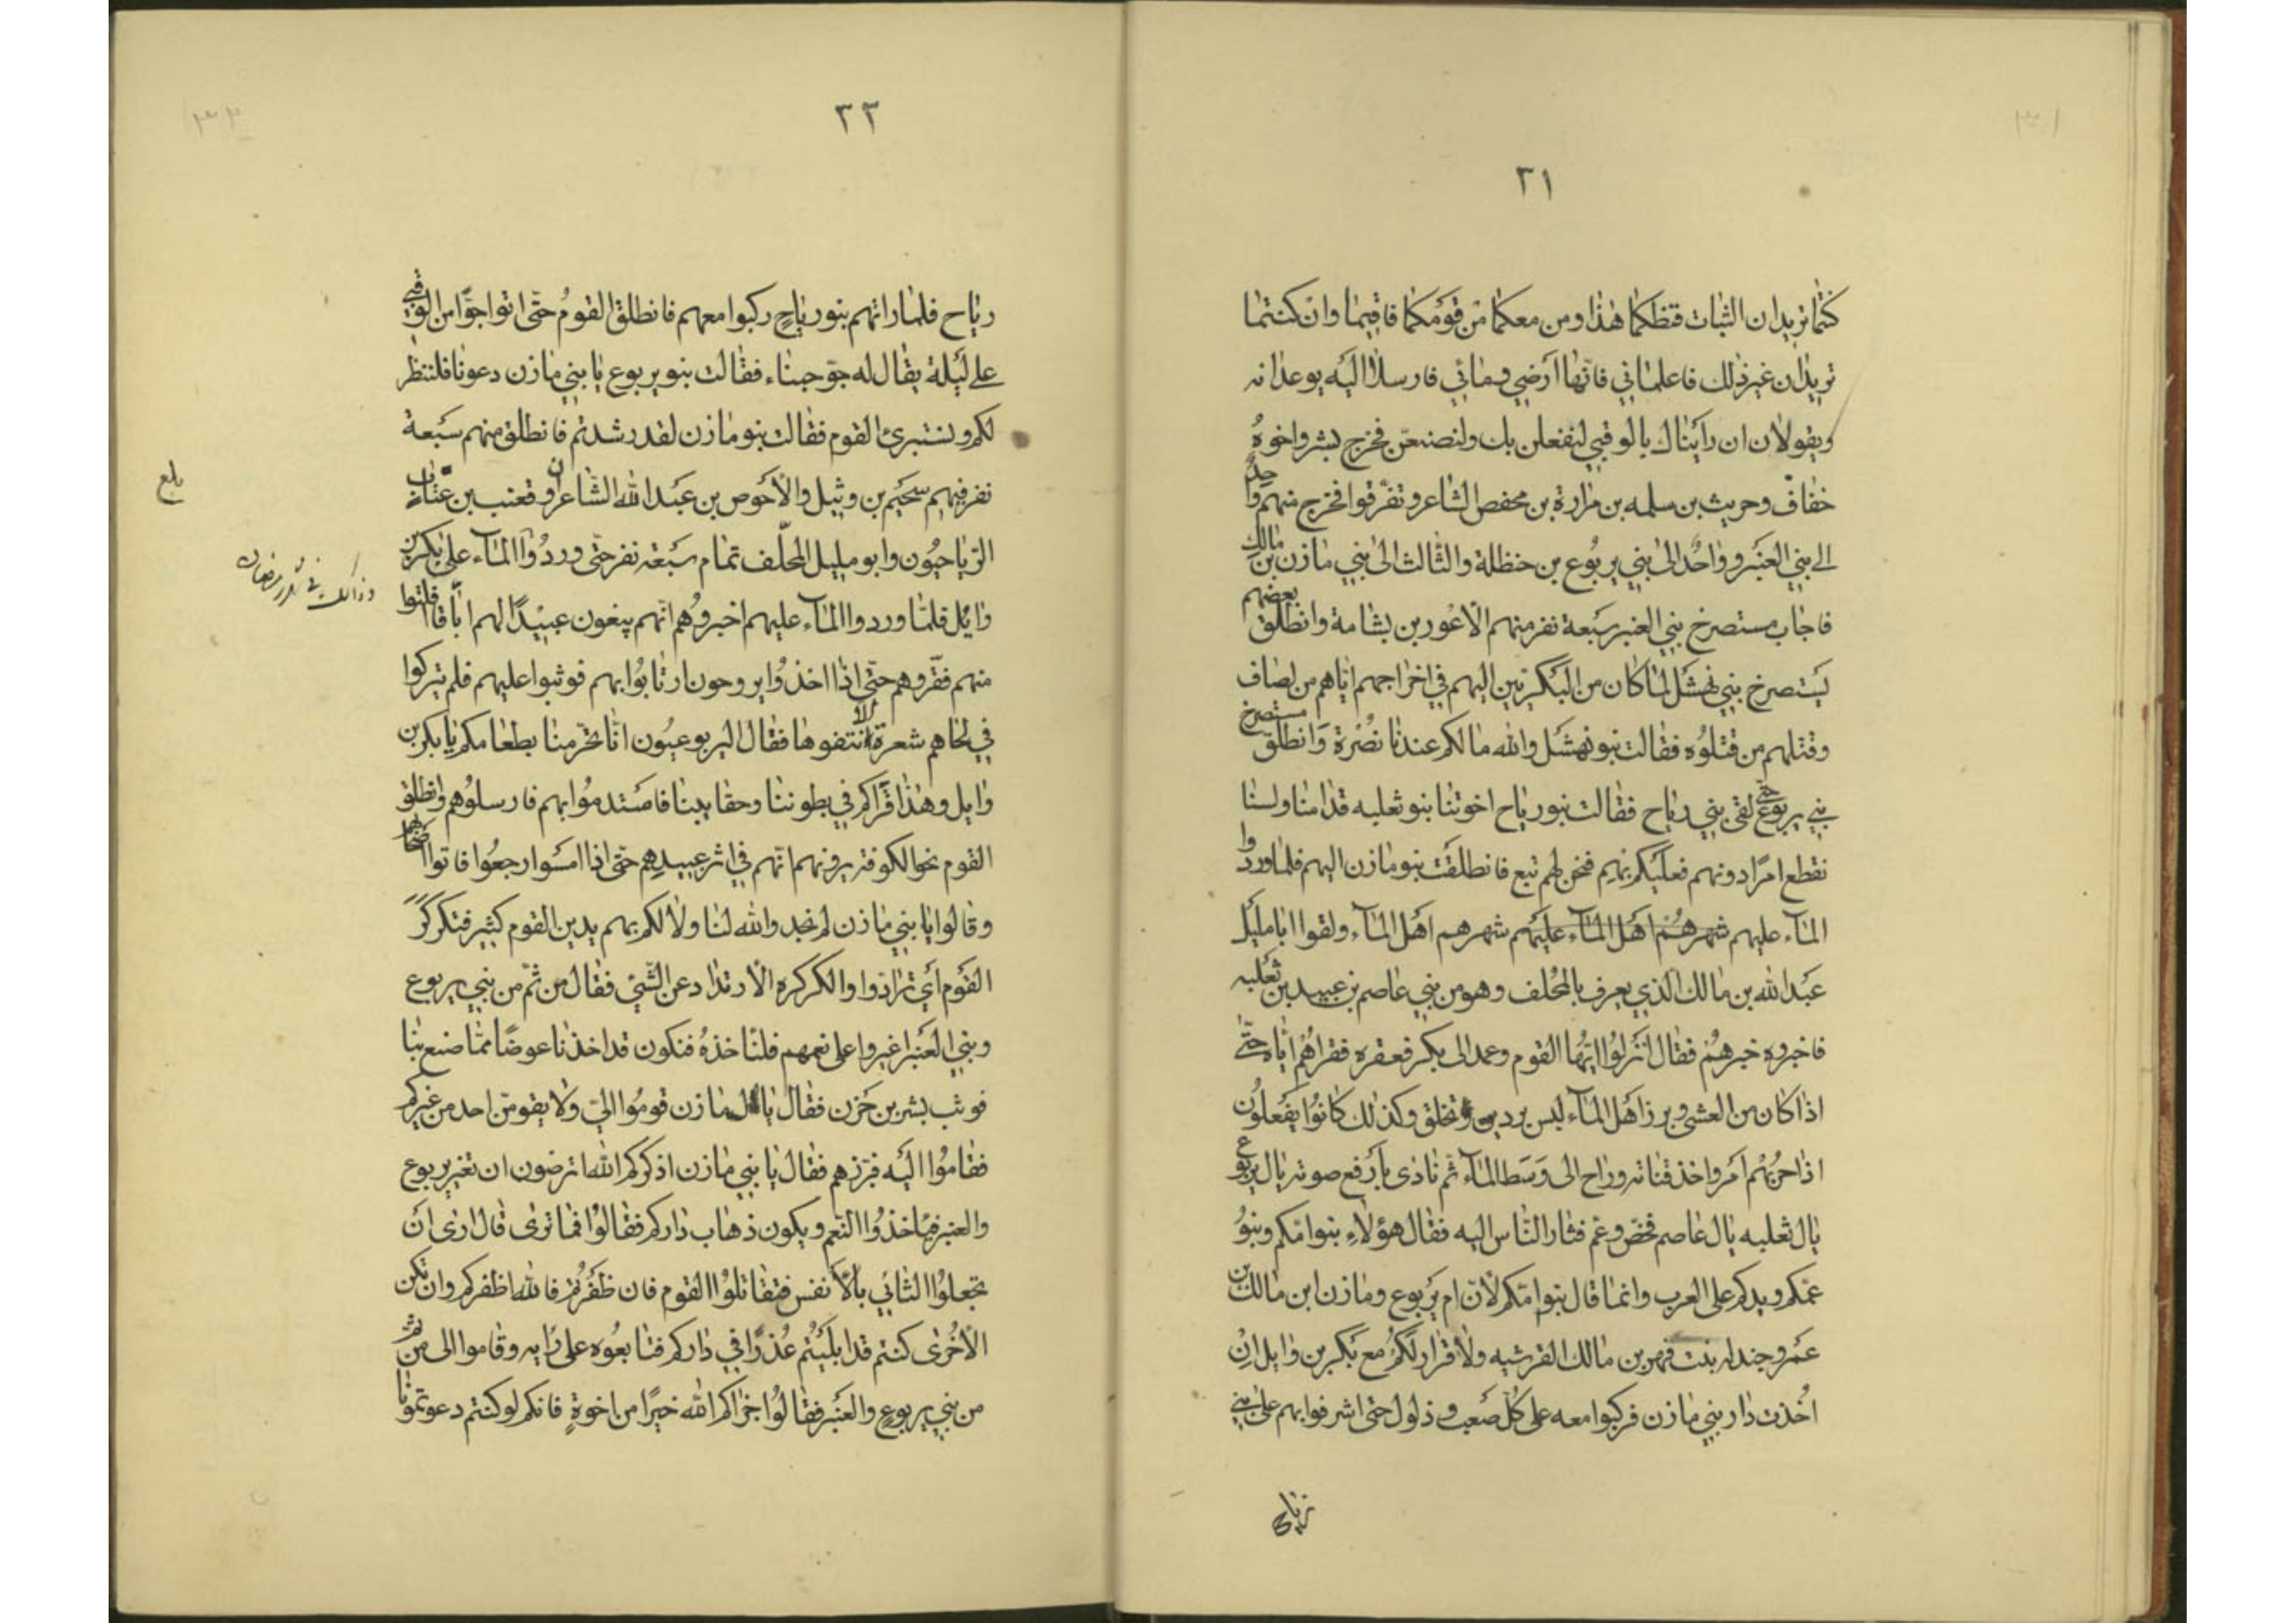 ٣١
كنتما تريدان الثبات قظكما هذا ومن معكما من قومكما فاقيما وان كنتما
تريدان غير ذلك فاعلماني فانها ارضي ومائي فارسلا اليه يوعدانه
ويقولان ان رايناك بالوقبي لنفعلن بك ولنصنعن فخرج بشر واخوه
خفاف وحريث بن سلمه بن مرارة بن محفص الشاعر وتفرقوا فخرج منهم واحد
الى بني العنبر وواحد الى بني يربوع بن حنظلة والثالث الى بني مازن بن مالك
فاجاب مستصرخ بني العنبر سبعة نفر منهم الاعور بن بشامة وانطلق بعضهم
يستصرخ بني نهشل لما كان من البكريين اليهم في اخراجهم اياهم من لصاف
وقتلهم من قتلوه فقالت بنو نهشل والله مالكم عندنا نصرة وانطلق مستصرخ
بني يربوع حتى لقى بني رياح فقالت بنو رياح اخوتنا بنو ثعلبه قدامنا ولسنا
نقطع امرا دونهم فعليكم بهم فنحن لهم تبع فانطلقت بنو مازن اليهم فلما وردوا
الماء عليهم شهرهم اهل الماء عليهم شهرهم اهل الماء ولقوا ابا مليل
عبد الله بن مالك الذي يعرف بالمحلف وهو من بني عاصم بن عبيد بن ثعلبه
فاخبروه خبرهم فقال انزلوا ايها القوم وعمد الى بكر فعقره فقراهم اياه حتى
اذا كان من العشى وبرز اهل الماء لبس برديه وتخلق وكذلك كانوا يفعلون
اذا حزبهم امر واخذ قناته وراح الى وسط الماء ثم نادى بارفع صوته يال يربوع
يال ثعلبه يال عاصم فخص وعم فثار الناس اليه فقال هؤلاء بنوا امكم وبنو
عمكم ويدكم على العرب وانما قال بنوا امكم لان ام يربوع ومازن ابن مالك بن
عمرو جندله بنت فهر بن مالك القرشيه ولا قرار لكم مع بكر بن وايل ان
اخذت دار بني مازن فركبوا معه على كل صعب وذلول حتى اشرفوا بهم على بني
رياح
٣٢
رياح فلما راتهم بنو رياح ركبوا معهم فانطلق القوم حتى اتوا جوا من الوقبي
على ليلة يقال له جو جبناء فقالت بنو يربوع يا بني مازن دعونا فلننظر
لكم ونستبرئ القوم فقالت بنو مازن لقد رشدتم فانطلق منهم سبعة
نفر فيهم سحيم بن وثيل والاخوص بن عبد الله الشاعران وقعنب بن عتاب
الرياحيون وابو مليل المحلف تمام سبعة نفر حتى وردوا الماء على بكر بن
وائل فلما وردوا الماء عليهم اخبروهم انهم يبغون عبيدا لهم اباقا فلتوا
منهم فقروهم حتى اذا اخذوا يروحون ارتابوا بهم فوثبوا عليهم فلم يتركوا
في لحاهم شعرة الا نتفوها فقال اليربوعيون انا تحرمنا بطعامكم يا بكر بن
وايل وهذا قراكم في بطوننا وحقايبنا فاستدموا بهم فارسلوهم وانطلق
القوم نحو الكوفة يرونهم انهم في اثر عبيدهم حتى اذا امسوا رجعوا فاتوا اصحابهم
وقالوا يا بني مازن لم نجد والله لنا ولا لكم بهم يدين القوم كثير فتكركر
القوم اي ترادوا والكركره الارتداد عن الشئ فقال من ثم من بني يربوع
وبني العنبر اغيروا على نعمهم فلناخذه فنكون قد اخذنا عوضا مما صنع بنا
فوثب بشر بن حزن فقال يال مازن قوموا الي ولا يقومن احد من غيركم
فقاموا اليه فبرزهم فقال يا بني مازن اذكركم الله اترضون ان تغير يربوع
والعنبر فياخذوا النعم ويكون ذهاب داركم فقالوا فما ترى قال ارى ان
تجعلوا الثاني بالانفس فتقاتلوا القوم فان ظفرتم فالله اظفركم وان تكن
الاخرى كنتم قد ابليتم عذرا في داركم فتابعوه على رايه وقاموا الى من ثم
من بني يربوع والعنبر فقالوا جزاكم الله خيرا من اخوة فانكم لو كنتم دعوتمونا
بلغ